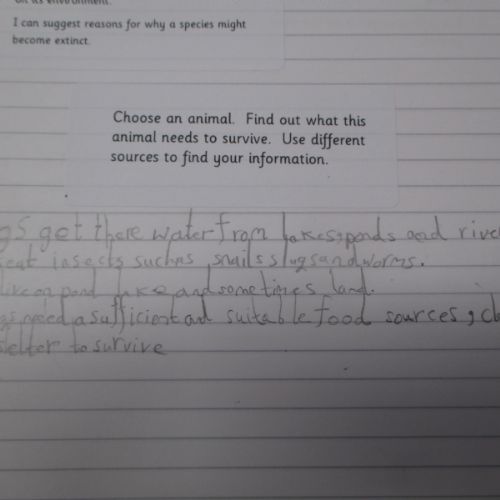 on its environment.
I can suggest reasons for why a species might
become extinct.
Choose an animal. Find out what this
animal needs to survive. Use different
sources to find your information.
gs get there water from lakes, ponds and rive
eat insects such as snails slugs and worms.
live on pond lake and sometimes land.
gs need a sufficient and suitable food sources, cl
shelter to survive